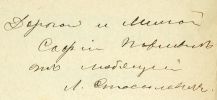 Дорогой и милой
Софiи Павловнѣ
отъ любящей
Л. Стасюлевичъ